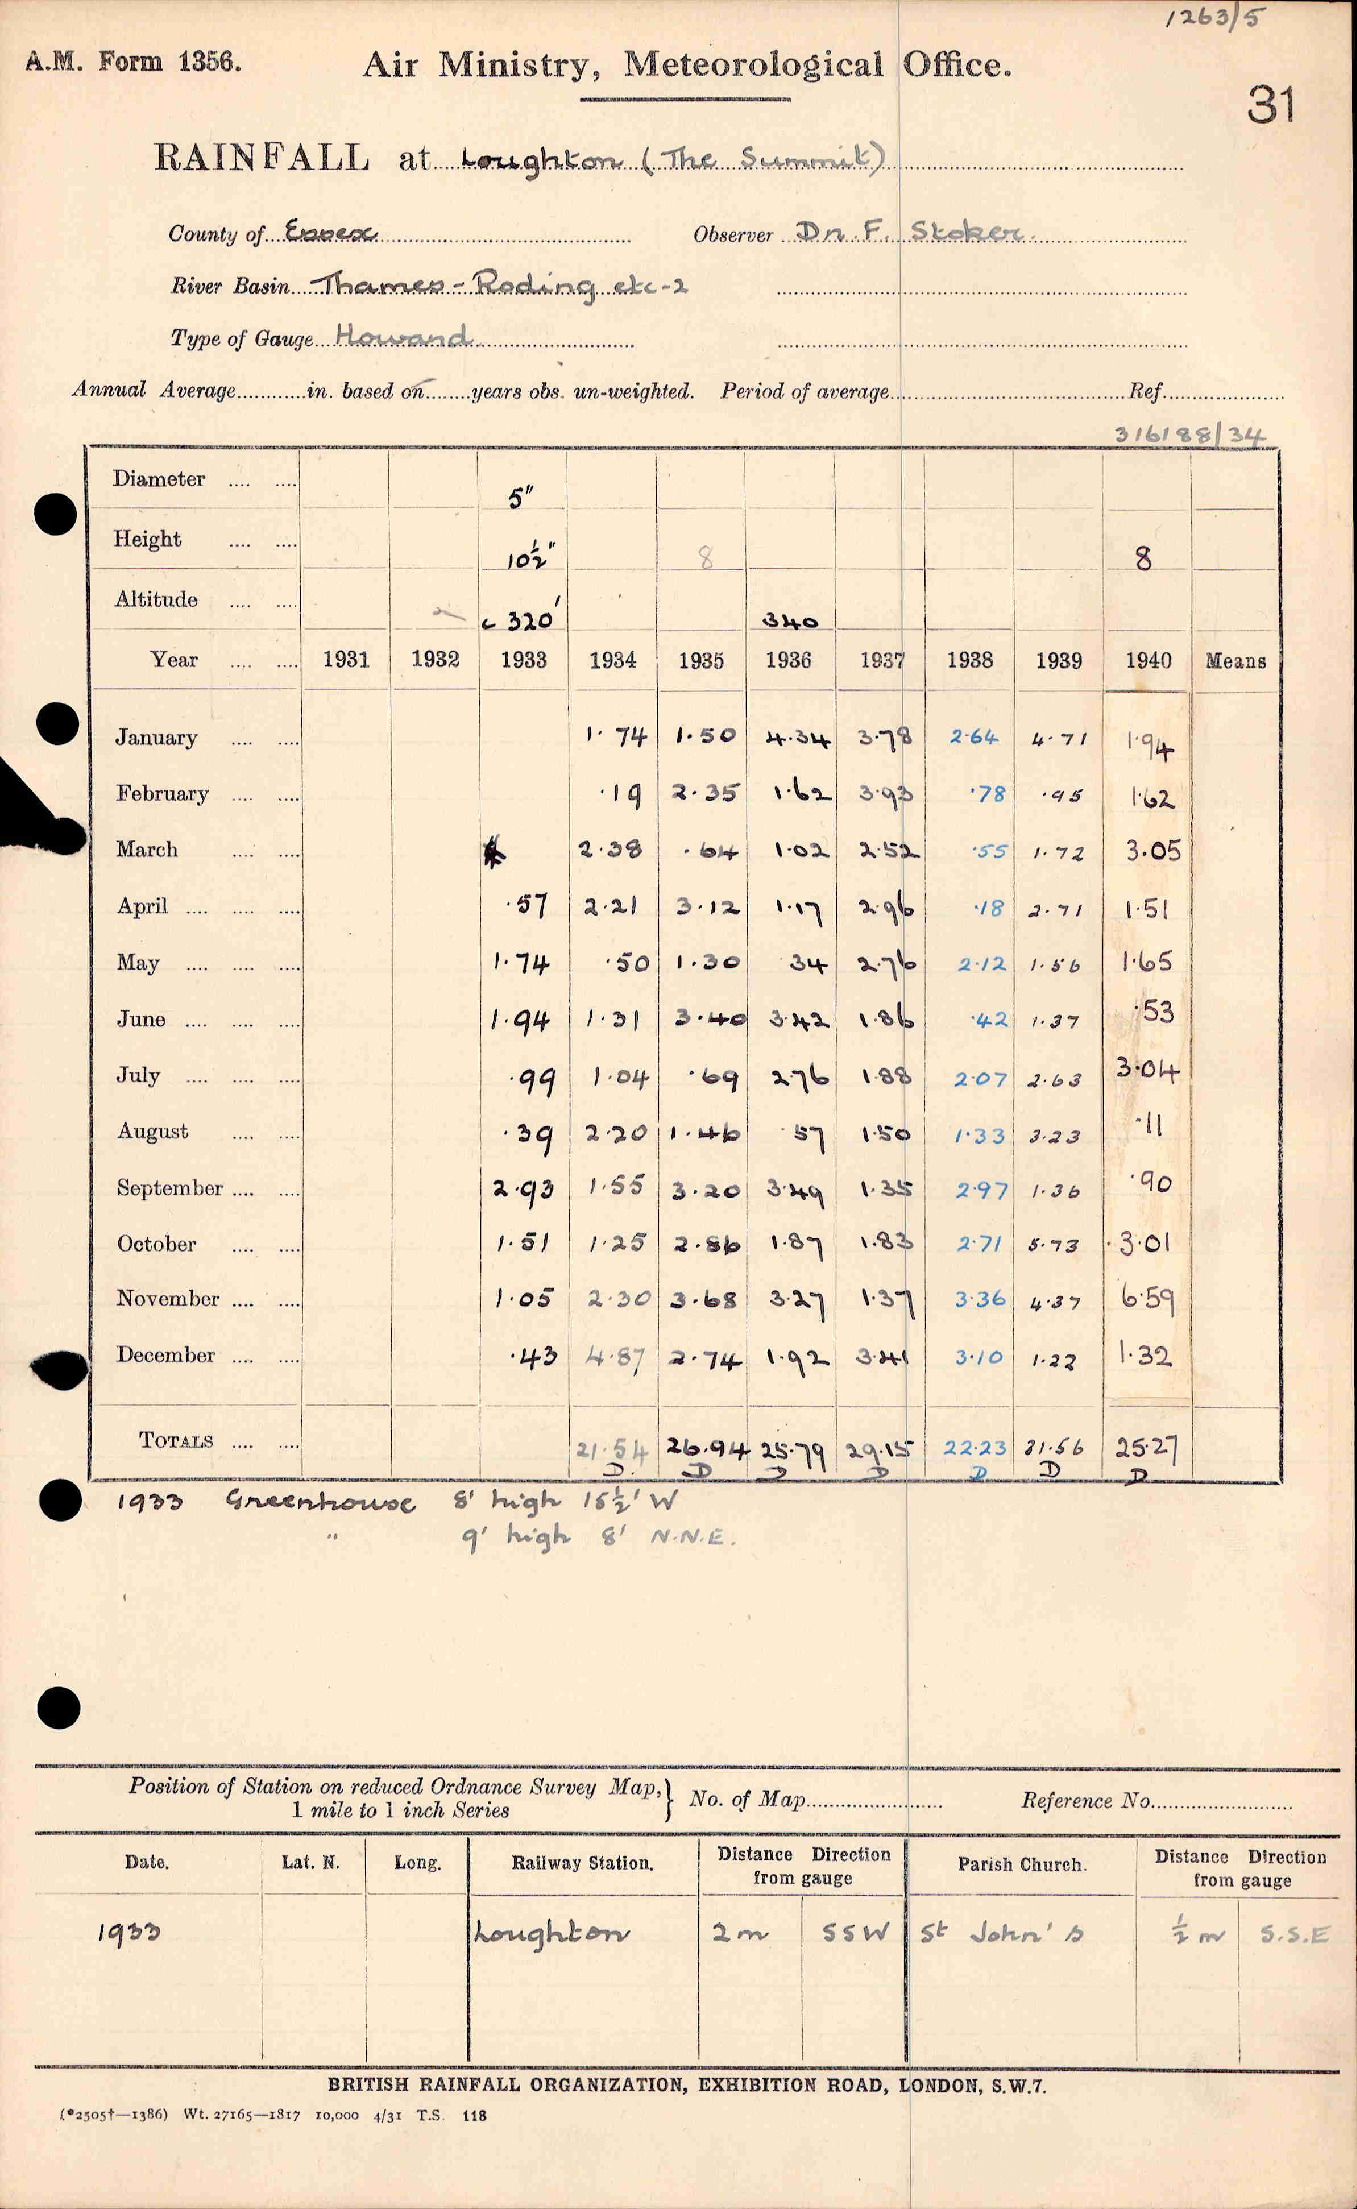 1263/5
A.M. Form 1356. Air Ministry, Meteorological Office.
31
RAINFALL at Loughton (The Summit)
County of Essex Observer Dr. F. Stoker.
River Basin Thames - Roding etc - 2
Type of Gauge Howard
Annual Average............in. based on........years obs. un-weighted. Period of average............ Ref............
316188/34
Diameter .... .... 5"
Height .... .... 10½" 8 8
Altitude .... .... c 320' 340
Year .... .... 1931 1932 1933 1934 1935 1936 1937 1938 1939 1940 Means
January .... .... 1.74 1.50 4.34 3.78 2.64 4.71 1.94
February .... .... .19 2.35 1.62 3.93 .78 .95 1.62
March .... .... 2.38 .64 1.02 2.52 .55 1.72 3.05
April .... .... .... .57 2.21 3.12 1.17 2.96 .18 2.71 1.51
May .... .... .... 1.74 .50 1.30 .34 2.76 2.12 1.56 1.65
June .... .... .... 1.94 1.31 3.40 3.42 1.86 .42 1.37 .53
July .... .... .... .99 1.04 .69 2.76 1.88 2.07 2.63 3.04
August .... .... .39 2.20 1.46 .57 1.50 1.33 3.23 .11
September .... .... 2.93 1.55 3.20 3.49 1.35 2.97 1.36 .90
October .... .... 1.51 1.25 2.86 1.87 1.83 2.71 5.73 3.01
November .... .... 1.05 2.30 3.68 3.27 1.37 3.36 4.37 6.59
December .... .... .43 4.87 2.74 1.92 3.41 3.10 1.22 1.32
TOTALS .... .... 21.54 26.94 25.79 29.15 22.23 31.56 25.27
D. D D D D D D
1933 Greenhouse 8' high 15½' W
" 9' high 8' N.N.E.
Position of Station on reduced Ordnance Survey Map, 1 mile to 1 inch Series } No. of Map............ Reference No............
Date. Lat. N. Long. Railway Station. Distance Direction from gauge Parish Church. Distance Direction from gauge
1933 Loughton 2 m SSW St John's ½ m S.S.E
BRITISH RAINFALL ORGANIZATION, EXHIBITION ROAD, LONDON, S.W.7.
(*2505†—1386) Wt. 27165—1817 10,000 4/31 T.S. 118